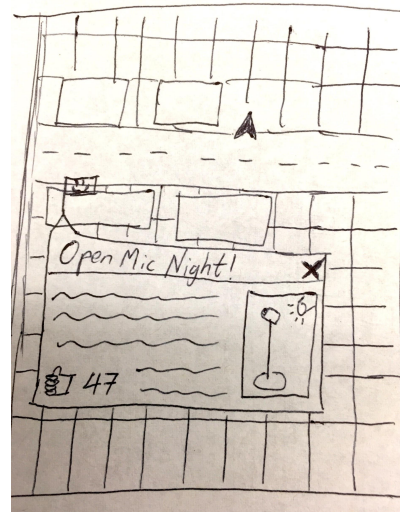 Open Mic Night!
47